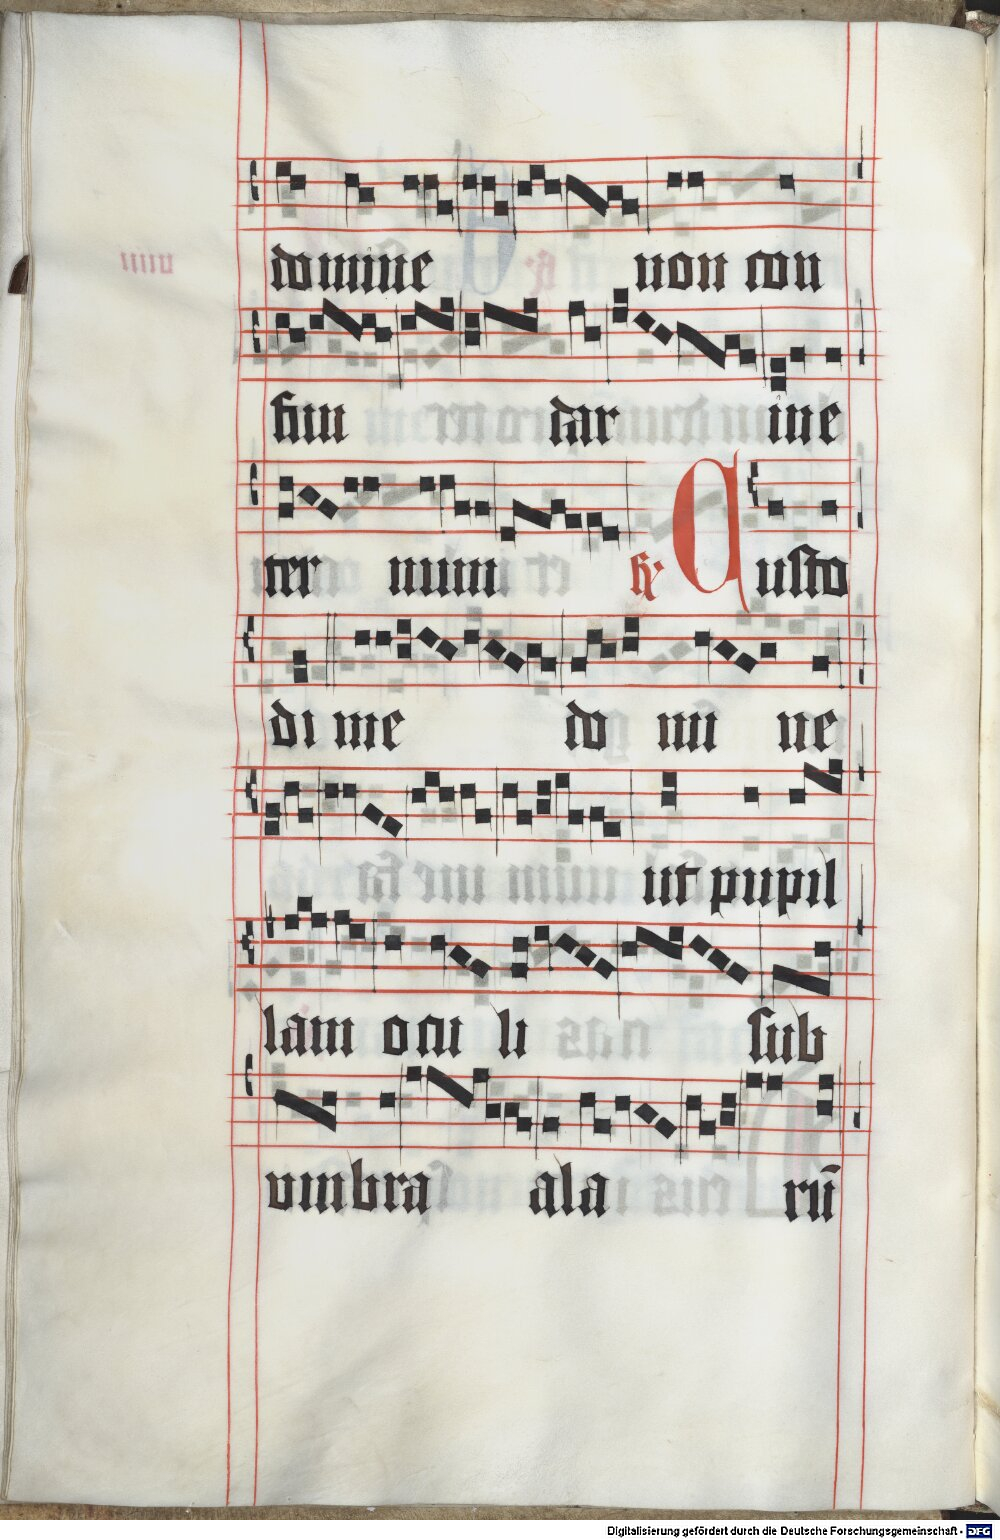 domine non con
fun dar in e
ter num ℟. Custo
di me do mi ne
ut pupil
lam ocu li sub
vmbra ala rū
Digitalisierung gefördert durch die Deutsche Forschungsgemeinschaft - DFG